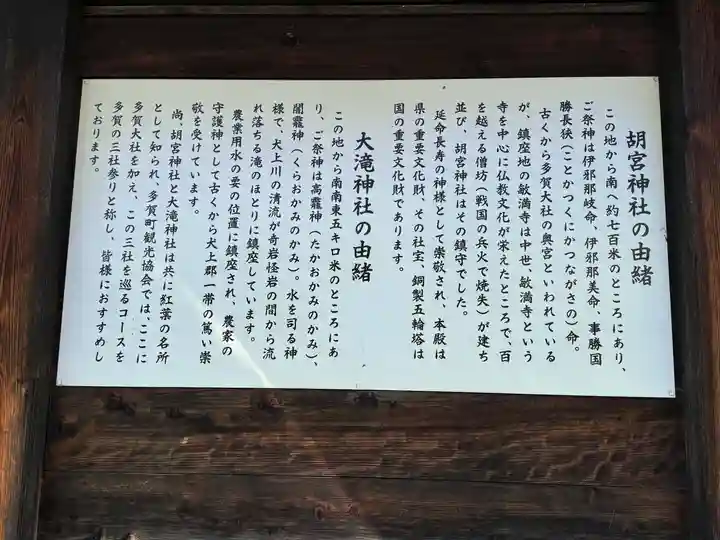 胡宮神社の由緒
この地から南へ約七百米のところにあり、
ご祭神は伊邪那岐命、伊邪那美命、事勝国
勝長狭(ことかつくにかつながさの)命。
古くから多賀大社の奥宮といわれている
が、鎮座地の敏満寺は中世、敏満寺という
寺を中心に仏教文化が栄えたところで、百
を越える僧坊(戦国の兵火で焼失)が建ち
並び、胡宮神社はその鎮守でした。
延命長寿の神様として崇敬され、本殿は
県の重要文化財、その社宝、銅製五輪塔は
国の重要文化財であります。
大滝神社の由緒
この地から南南東五キロ米のところにあ
り、ご祭神は高龗神(たかおかみのかみ)、
闇龗神(くらおかみのかみ)。水を司る神
様で、犬上川の清流が奇岩怪岩の間から流
れ落ちる滝のほとりに鎮座しています。
農業用水の要の位置に鎮座され、農家の
守護神として古くから犬上郡一帯の篤い崇
敬を受けています。
尚、胡宮神社と大滝神社は共に紅葉の名所
として知られ、多賀町観光協会では、ここに
多賀大社を加え、この三社を巡るコースを
多賀の三社参りと称し、皆様におすすめし
ております。